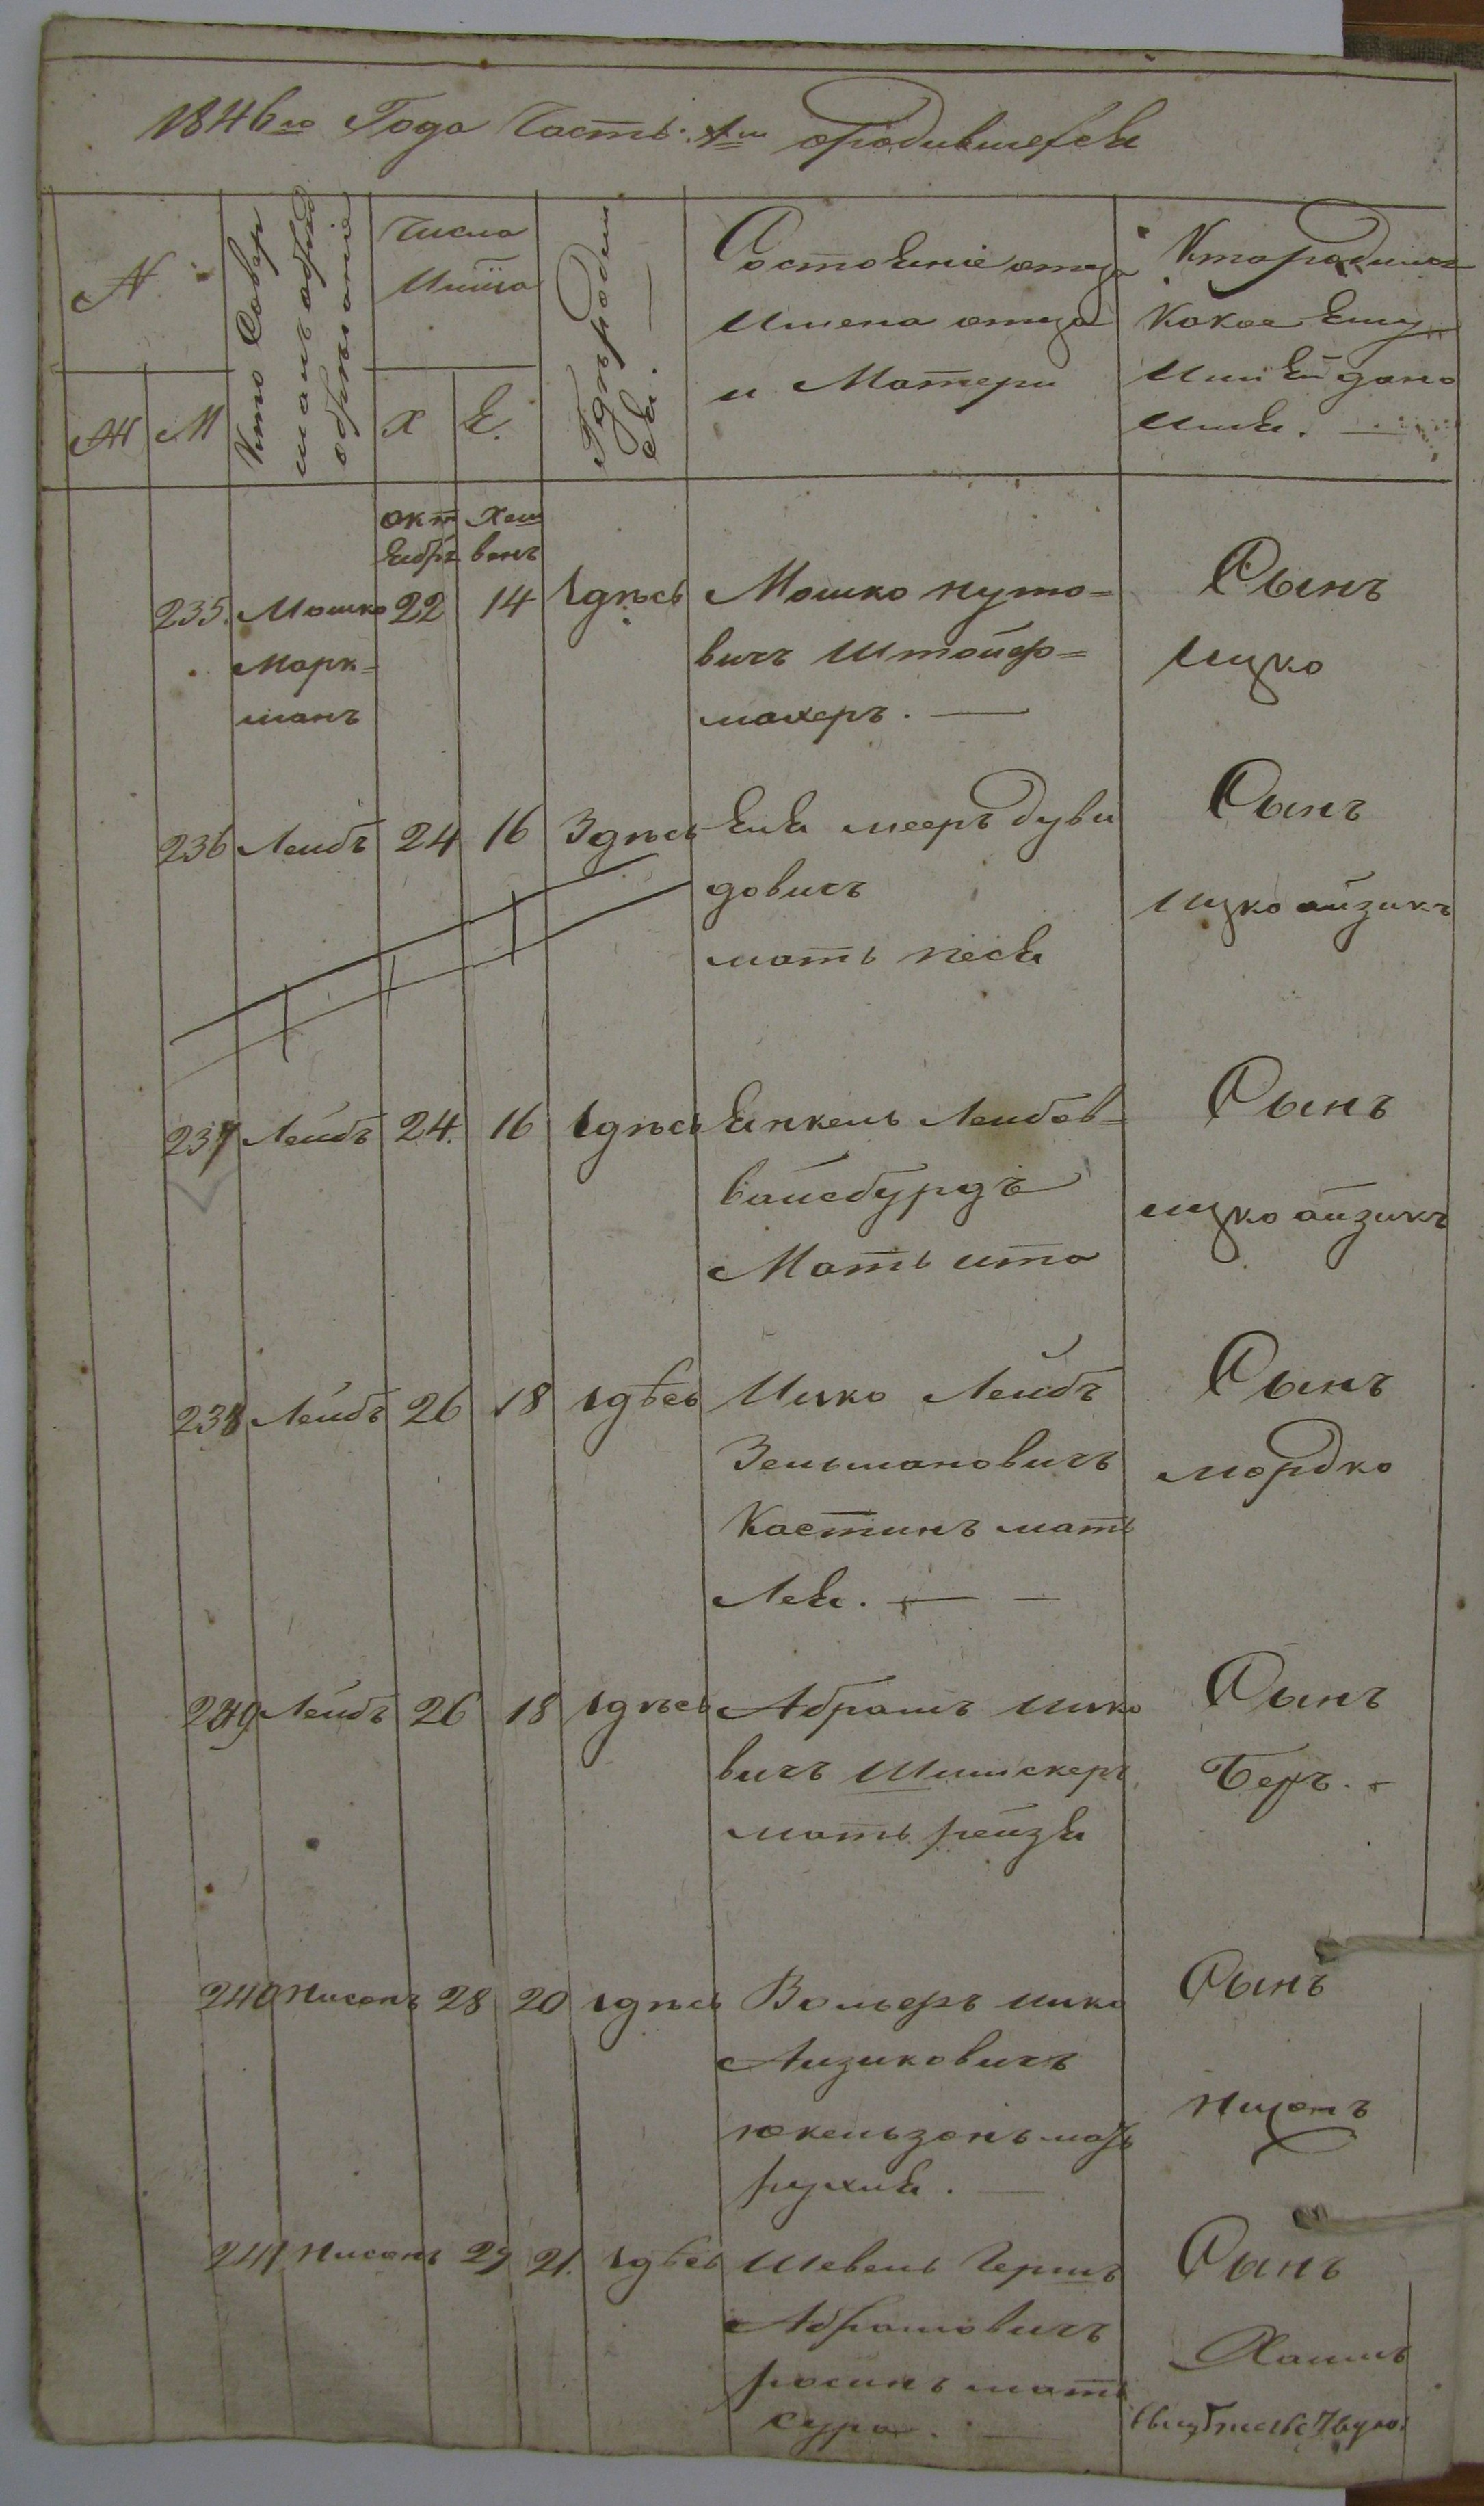 1846го Года Часть 1я ородившехся
№
Кто Совер
шалъ обряд
обрѣзаніе
Числа
Мѣся
Гдѣ родил
ся.
Состояніе отца
Имена отца
и Матери
Кто родился
Какое Ему
Или Ей дано
Имя.
Ж М Х Е.
окт хеш
ябрь ванъ
235. Мошко 22 14 Здѣсь Мошко нуто=
вичъ Штойф=
махеръ.
Марк=
манъ
Сынъ
Ицко
236 Лейбъ 24 16 Здѣсь Еля мееръ дуви
довичъ
мать песя
Сынъ
Ицко айзикъ
237 Лейбъ 24. 16 Здѣсь Янкель Лейбов=
вайсбурдъ
Мать ита
Сынъ
ицко айзикъ
238 Лейбъ 26 18 Здѣсь Ицко Лейбъ
Зельмановичъ
Кастинъ мать
Лея.
Сынъ
мордко
239 Лейбъ 26 18 Здѣсь Абрамъ Ицко
вичъ
мать рейзя
Сынъ
Беръ.
240 Нисонъ 28 20 Здѣсь Вольфъ ицко
Айзиковичъ
мать
рухля.
Сынъ
Нисонъ
241 Нисонъ 29 21. Здѣсь Шевель Гершъ
Абрамовичъ
росинъ мать
сура.
Сынъ
Хаимъ